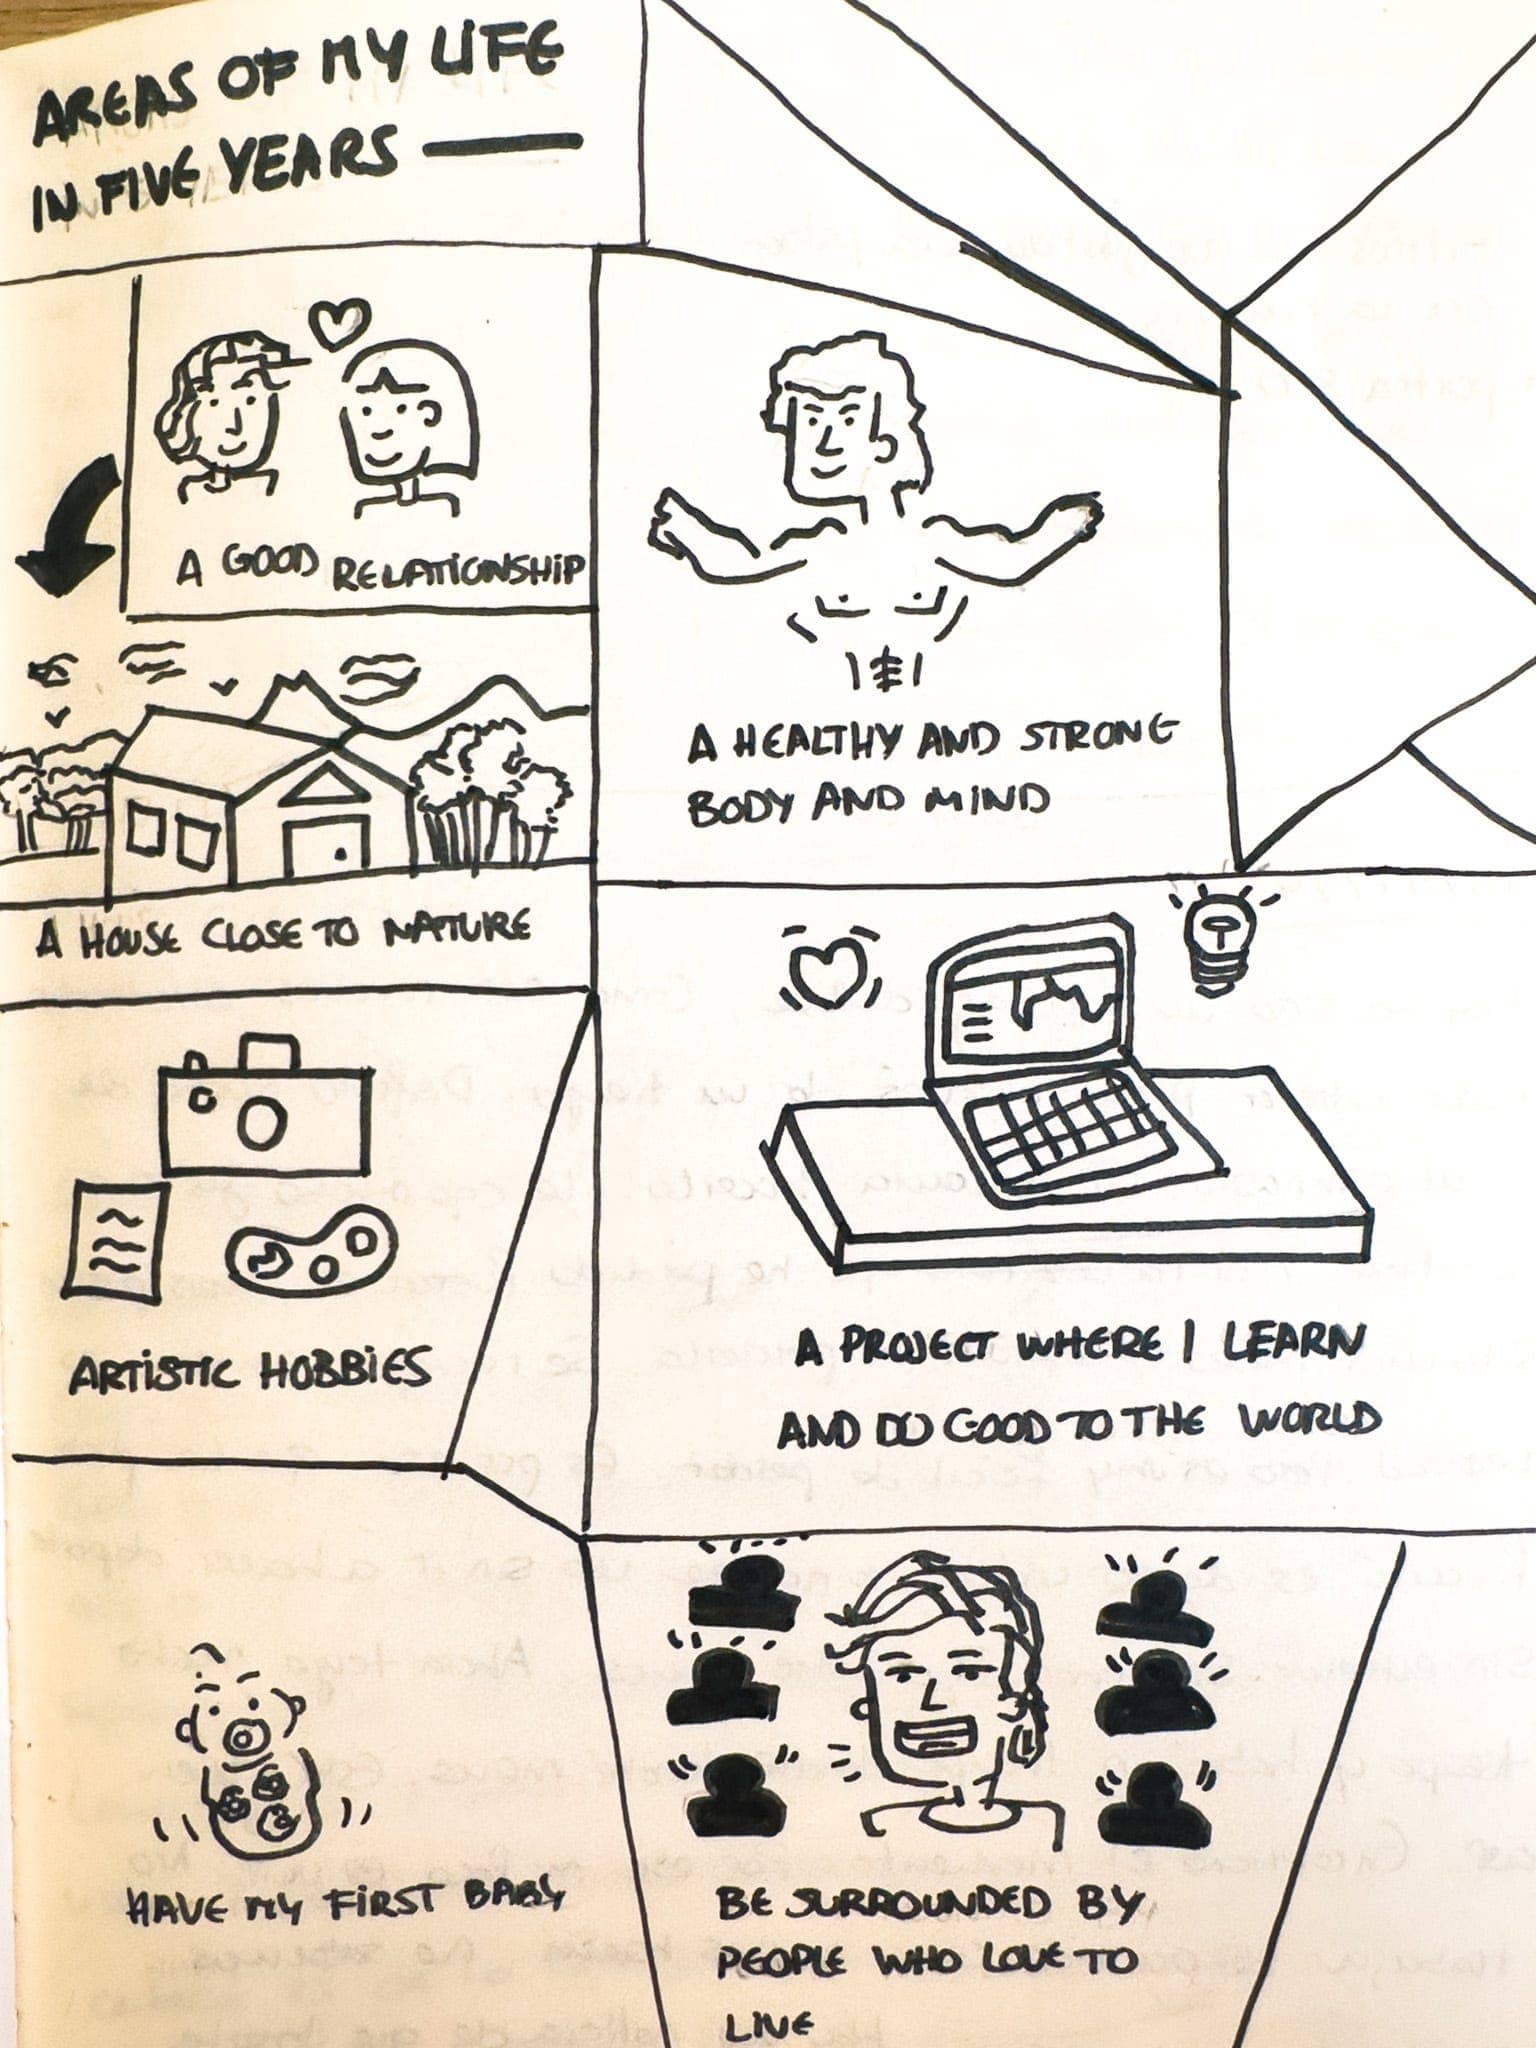 AREAS OF MY LIFE
IN FIVE YEARS
A GOOD RELATIONSHIP
A HEALTHY AND STRONG
BODY AND MIND
A HOUSE CLOSE TO NATURE
ARTISTIC HOBBIES
A PROJECT WHERE I LEARN
AND DO GOOD TO THE WORLD
HAVE MY FIRST BABY
BE SURROUNDED BY
PEOPLE WHO LOVE TO
LIVE